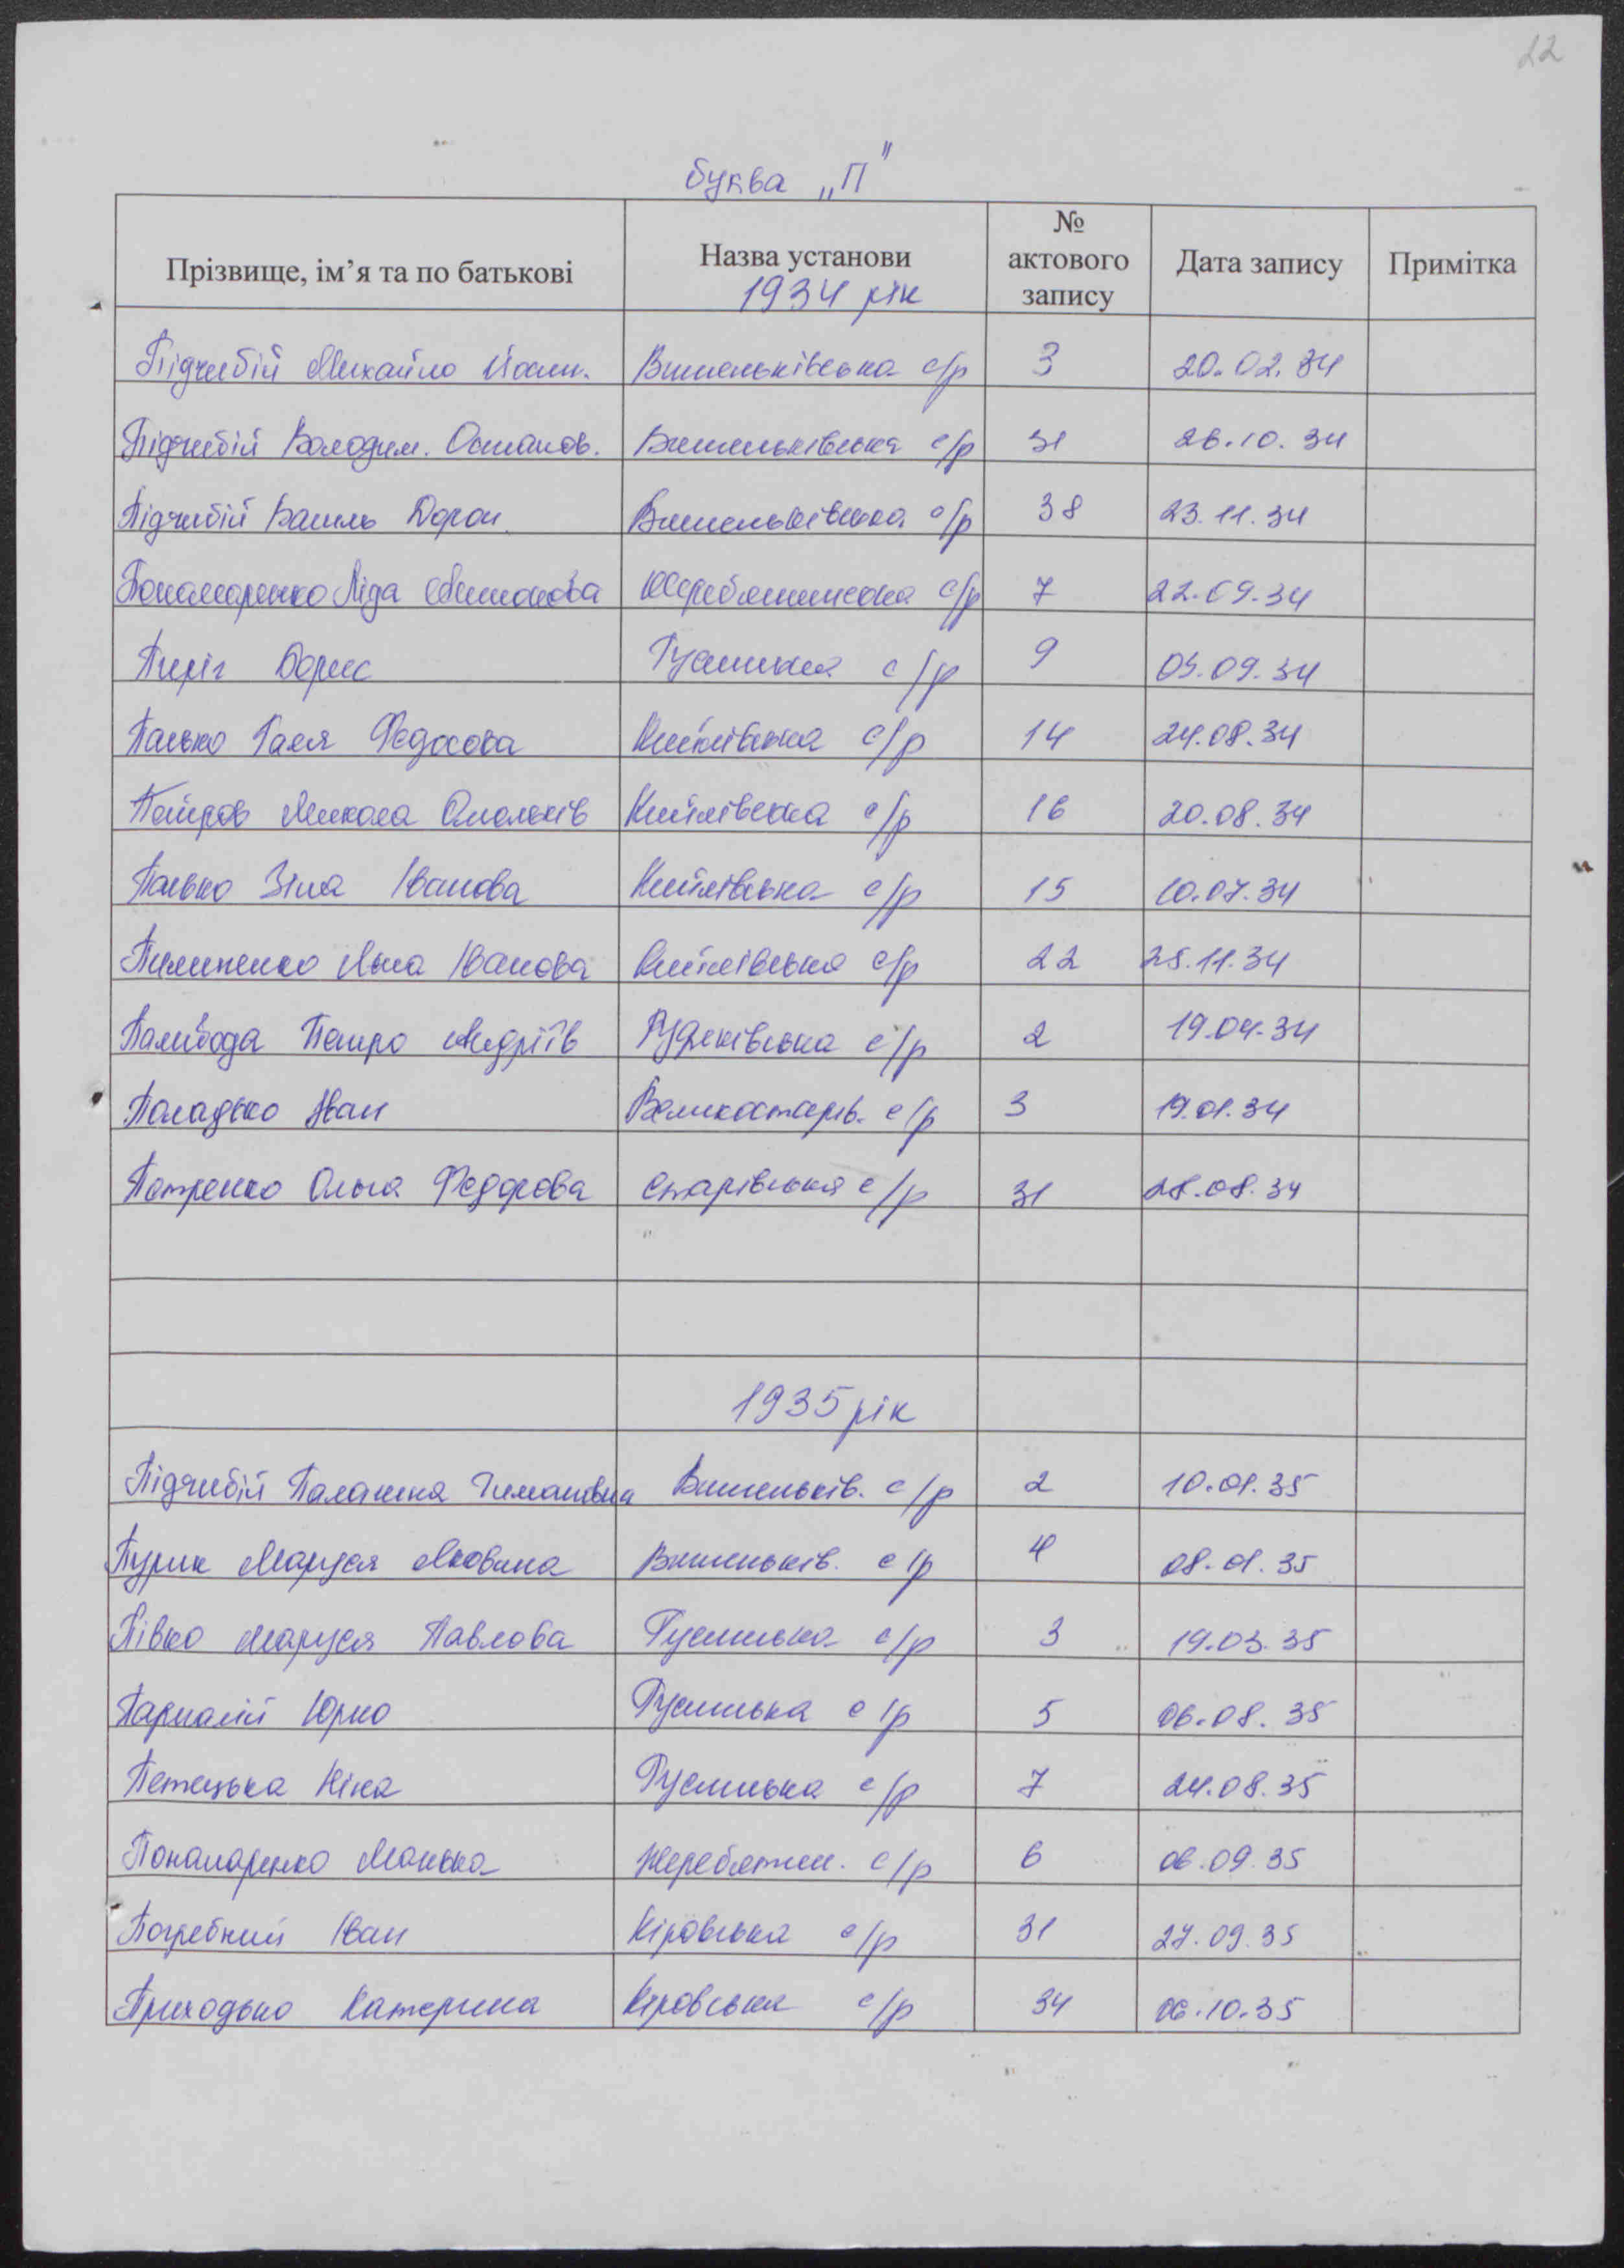 22
буква „П"
Прізвище, ім’я та по батькові Назва установи № актового запису Дата запису Примітка
1934 рік
Підчибій Михайло Йосип. Вишеньківська с/р 3 20.02.34
Підчибій Володим. Остапов. Вишеньківська с/р 31 26.10.34
Підчибій Василь Дорон. Вишеньківська с/р 38 23.11.34
Пономаренко Ліда Антонова Жеребятинська с/р 7 22.09.34
Пиріг Борис Гусинська с/р 9 03.09.34
Пасько Галя Федосова Кийлівська с/р 14 24.08.34
Микола Кийлівська с/р 16 20.08.34
Пасько Зіна Іванова Кийлівська с/р 15 10.07.34
Пилипенко Іванова Кийлівська с/р 22 25.11.34
Паливода Петро Андріїв Рудяківська с/р 2 19.04.34
Поладько Іван Великостарів. с/р 3 19.01.34
Петренко Ольга Федорова Старівська с/р 31 28.08.34
1935 рік
Підчибій Палажка Тиманівна Вишеньків. с/р 2 10.01.35
Пурик Маруся Яковина Вишеньків. с/р 4 08.01.35
Півко Маруся Павлова Гусинська с/р 3 19.03.35
Юрко Гусинська с/р 5 06.08.35
Петецька Ніна Гусинська с/р 7 24.08.35
Понамаренко Манька Жеребятин. с/р 6 06.09.35
Погребний Іван Кіровська с/р 31 27.09.35
Приходько Катерина Кіровська с/р 34 06.10.35